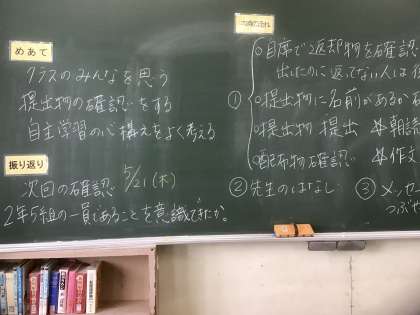 めあて
クラスのみんなを思う
提出物の確認をする
自主学習の心構えをよく考える
振り返り
次回の確認 5/21(木)
2年5組の一員であることを意識できたか。
①
○自席で返却物を確認
出したのに返ってない人は
○提出物に名前があるか
○提出物 提出 本朝読
○配布物確認 本作文
②先生のはなし
③
つぶや